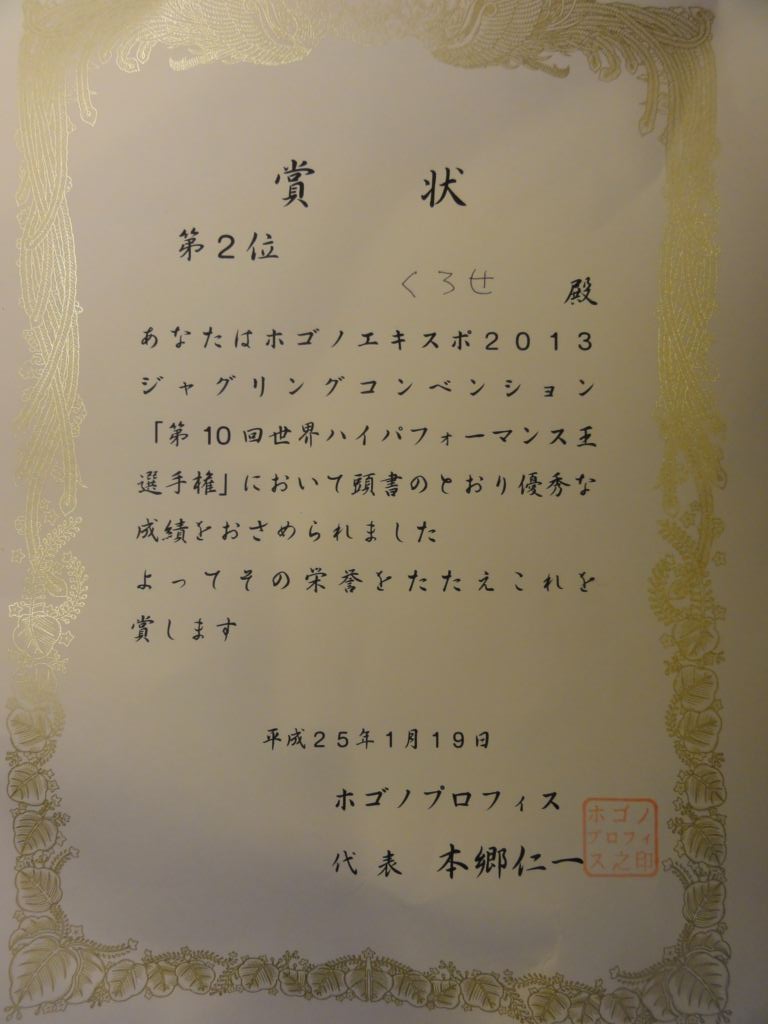 賞 状
第２位
くろせ 殿
あなたはホゴノエキスポ２０１３
ジャグリングコンベンション
「第10回世界ハイパフォーマンス王
選手権」において頭書のとおり優秀な
成績をおさめられました
よってその栄誉をたたえこれを
賞します
平成２５年１月１９日
ホゴノプロフィス
代表 本郷仁一
ホゴノ
プロフィ
ス之印